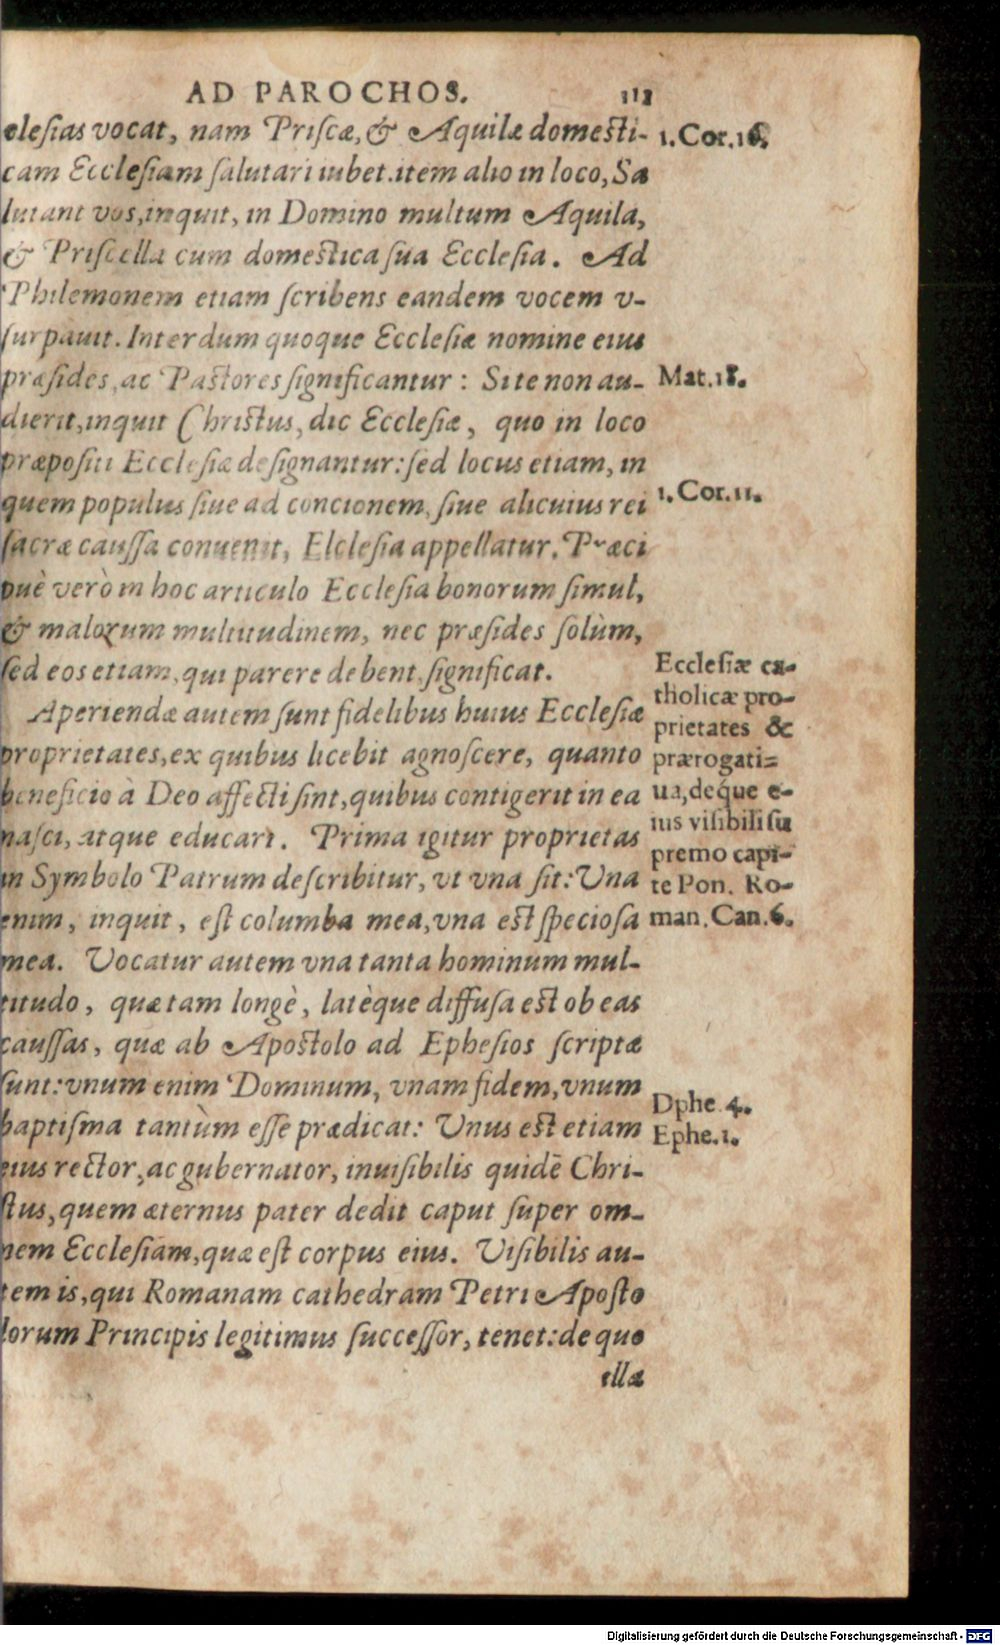 AD PAROCHOS. 113
clesias vocat, nam Priscæ, & Aquilæ domesti-
cam Ecclesiam salutari iubet. item alio in loco, Sa
lutant vos, inquit, in Domino multum Aquila,
& Priscilla cum domestica sua Ecclesia. Ad
Philemonem etiam scribens eandem vocem v-
surpauit. Interdum quoque Ecclesiæ nomine eius
præsides, ac Pastores significantur: Si te non au-
dierit, inquit Christus, dic Ecclesiæ, quo in loco
præpositi Ecclesiæ designantur: sed locus etiam, in
quem populus siue ad concionem, siue alicuius rei
sacræ caussa conuenit, Elclesia appellatur. Præci
puè verò in hoc articulo Ecclesia bonorum simul,
& malorum multitudinem, nec præsides solùm,
sed eos etiam, qui parere debent, significat.
Aperiendæ autem sunt fidelibus huius Ecclesiæ
proprietates, ex quibus licebit agnoscere, quanto
beneficio à Deo affecti sint, quibus contigerit in ea
nasci, atque educari. Prima igitur proprietas
in Symbolo Patrum describitur, vt vna sit: Vna
enim, inquit, est columba mea, vna est speciosa
mea. Vocatur autem vna tanta hominum mul-
titudo, quæ tam longè, latèque diffusa est ob eas
caussas, quæ ab Apostolo ad Ephesios scriptæ
sunt: vnum enim Dominum, vnam fidem, vnum
baptisma tantùm esse prædicat: Vnus est etiam
eius rector, ac gubernator, inuisibilis quidẽ Chri-
stus, quem æternus pater dedit caput super om-
nem Ecclesiam, quæ est corpus eius. Visibilis au-
tem is, qui Romanam cathedram Petri Aposto
lorum Principis legitimus successor, tenet: de quo
illæ
1. Cor. 16.
Mat. 18.
1. Cor. 11.
Ecclesiæ ca-
tholicæ pro-
prietates &
prærogati-
ua, deque e-
ius visibili su
premo capi-
te Pon. Ro-
man. Can. 6.
Dphe 4.
Ephe. 1.
Digitalisierung gefördert durch die Deutsche Forschungsgemeinschaft - DFG